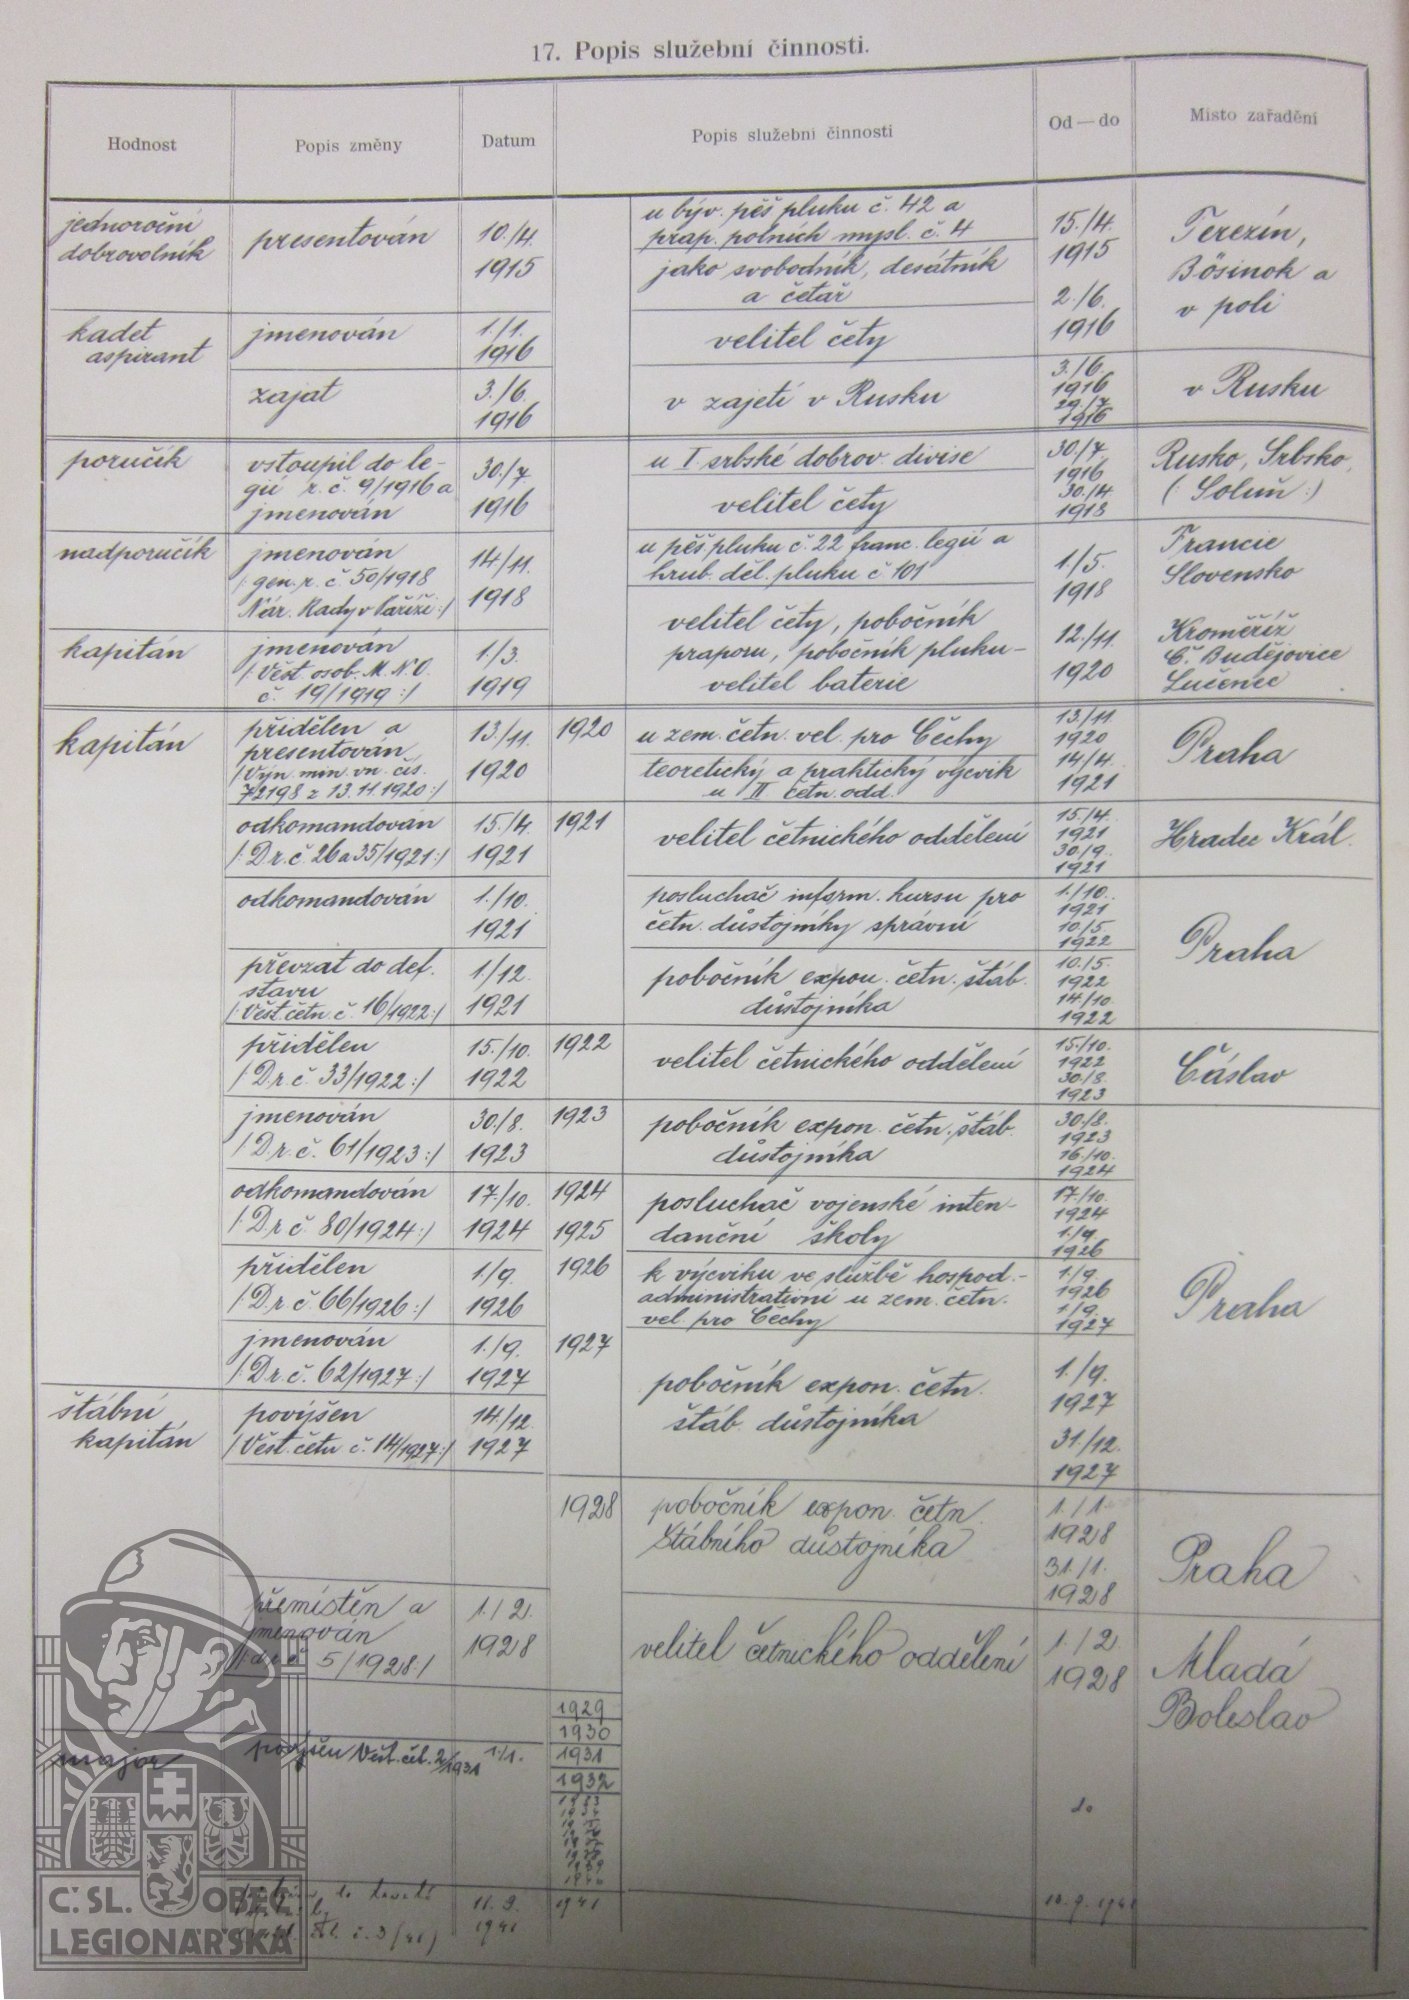 17. Popis služební činnosti.
Hodnost
Popis změny
Datum
Popis služební činnosti
Od — do
Místo zařadění
jednoroční
dobrovolník
presentován
10./4.
1915
u býv. pěš pluku č. 42 a
prap. polních mysl. č. 4
jako svobodník, desátník
a četař
15./4.
1915
2./6.
1916
Terezín,
Bösinok a
v poli
kadet
aspirant
jmenován
1./1.
1916
velitel čety
zajat
3./6.
1916
v zajetí v Rusku
3./6.
1916
29./7
1916
v Rusku
poručík
vstoupil do le-
gií r. č. 9/1916 a
jmenován
30./7
1916
u I srbské dobrov. divise
velitel čety
30./7
1916
30./4
1918
Rusko, Srbsko,
(: Soluň :)
nadporučík
jmenován
/: gen. r. č. 50/1918
Nár. Rady v Paříži :/
14/11.
1918
u pěš. pluku č. 22 franc. legií a
hrub. děl. pluku č. 101
1./5.
1918
Francie
Slovensko
kapitán
jmenován
/: Věst. osob. M. N. O.
č. 19/1919 :/
1./3.
1919
velitel čety, pobočník
praporu, pobočník pluku-
velitel baterie
12./11.
1920
Kroměříž
Č. Budějovice
Lučenec
kapitán
přidělen a
presentován
/: Výn. min. vn. čís.
72198 z 13. 11. 1920 :/
13./11.
1920
1920
u zem. četn. vel. pro Čechy
teoretický a praktický výcvik
u II četn. odd.
13./11.
1920
14/4.
1921
Praha
odkomandován
/: D.r. č. 26 a 35/1921 :/
15./4.
1921
1921
velitel četnického oddělení
15./4.
1921
30./9.
1921
Hradec Král.
odkomandován
1./10.
1921
posluchač inform. kursu pro
četn. důstojníky správní
1./10.
1921
10./5
1922
Praha
převzat do def.
stavu
/: Věst. četn. č. 16/1922 :/
1./12.
1921
pobočník expon. četn. štáb.
důstojníka
10./5.
1922
14/10.
1922
přidělen
/: D.r. č. 33/1922 :/
15./10.
1922
1922
velitel četnického oddělení
15./10.
1922
30./8.
1923
Čáslav
jmenován
/: D.r. č. 61/1923 :/
30./8.
1923
1923
pobočník expon. četn. štáb.
důstojníka
30./8.
1923
16./10.
1924
odkomandován
/: D.r. č. 80/1924 :/
17./10.
1924
1924
1925
posluchač vojenské inten-
danční školy
17./10.
1924
1./9.
1926
přidělen
/: D.r. č. 66/1926 :/
1./9.
1926
1926
k výcviku ve službě hospod.-
administrativní u zem. četn.
vel. pro Čechy
1./9.
1926
1./9.
1927
Praha
jmenován
/: D.r. č. 62/1927 :/
1./9.
1927
1927
pobočník expon. četn.
štáb. důstojníka
1./9.
1927
31./12.
1927
štábní
kapitán
povýšen
/: Věst. četn č. 14/1927 :/
14./12.
1927
1928
pobočník expon. četn.
štábního důstojníka
1./1.
1928
31./1.
1928
Praha
přemístěn a
jmenován
/: d.r. č. 5/1928 :/
1./2.
1928
velitel četnického oddělení
1./2.
1928
Mladá
Boleslav
1929
1930
major
povýšen Věst. čet. 2/1931
1./1.
1931
1932
1933
1934
1935
1936
1937
1938
1939
1940
do
11. 9.
1941
1941
10. 9. 1941
č. 3/41)
Č. SL. OBEC
LEGIONÁŘSKÁ